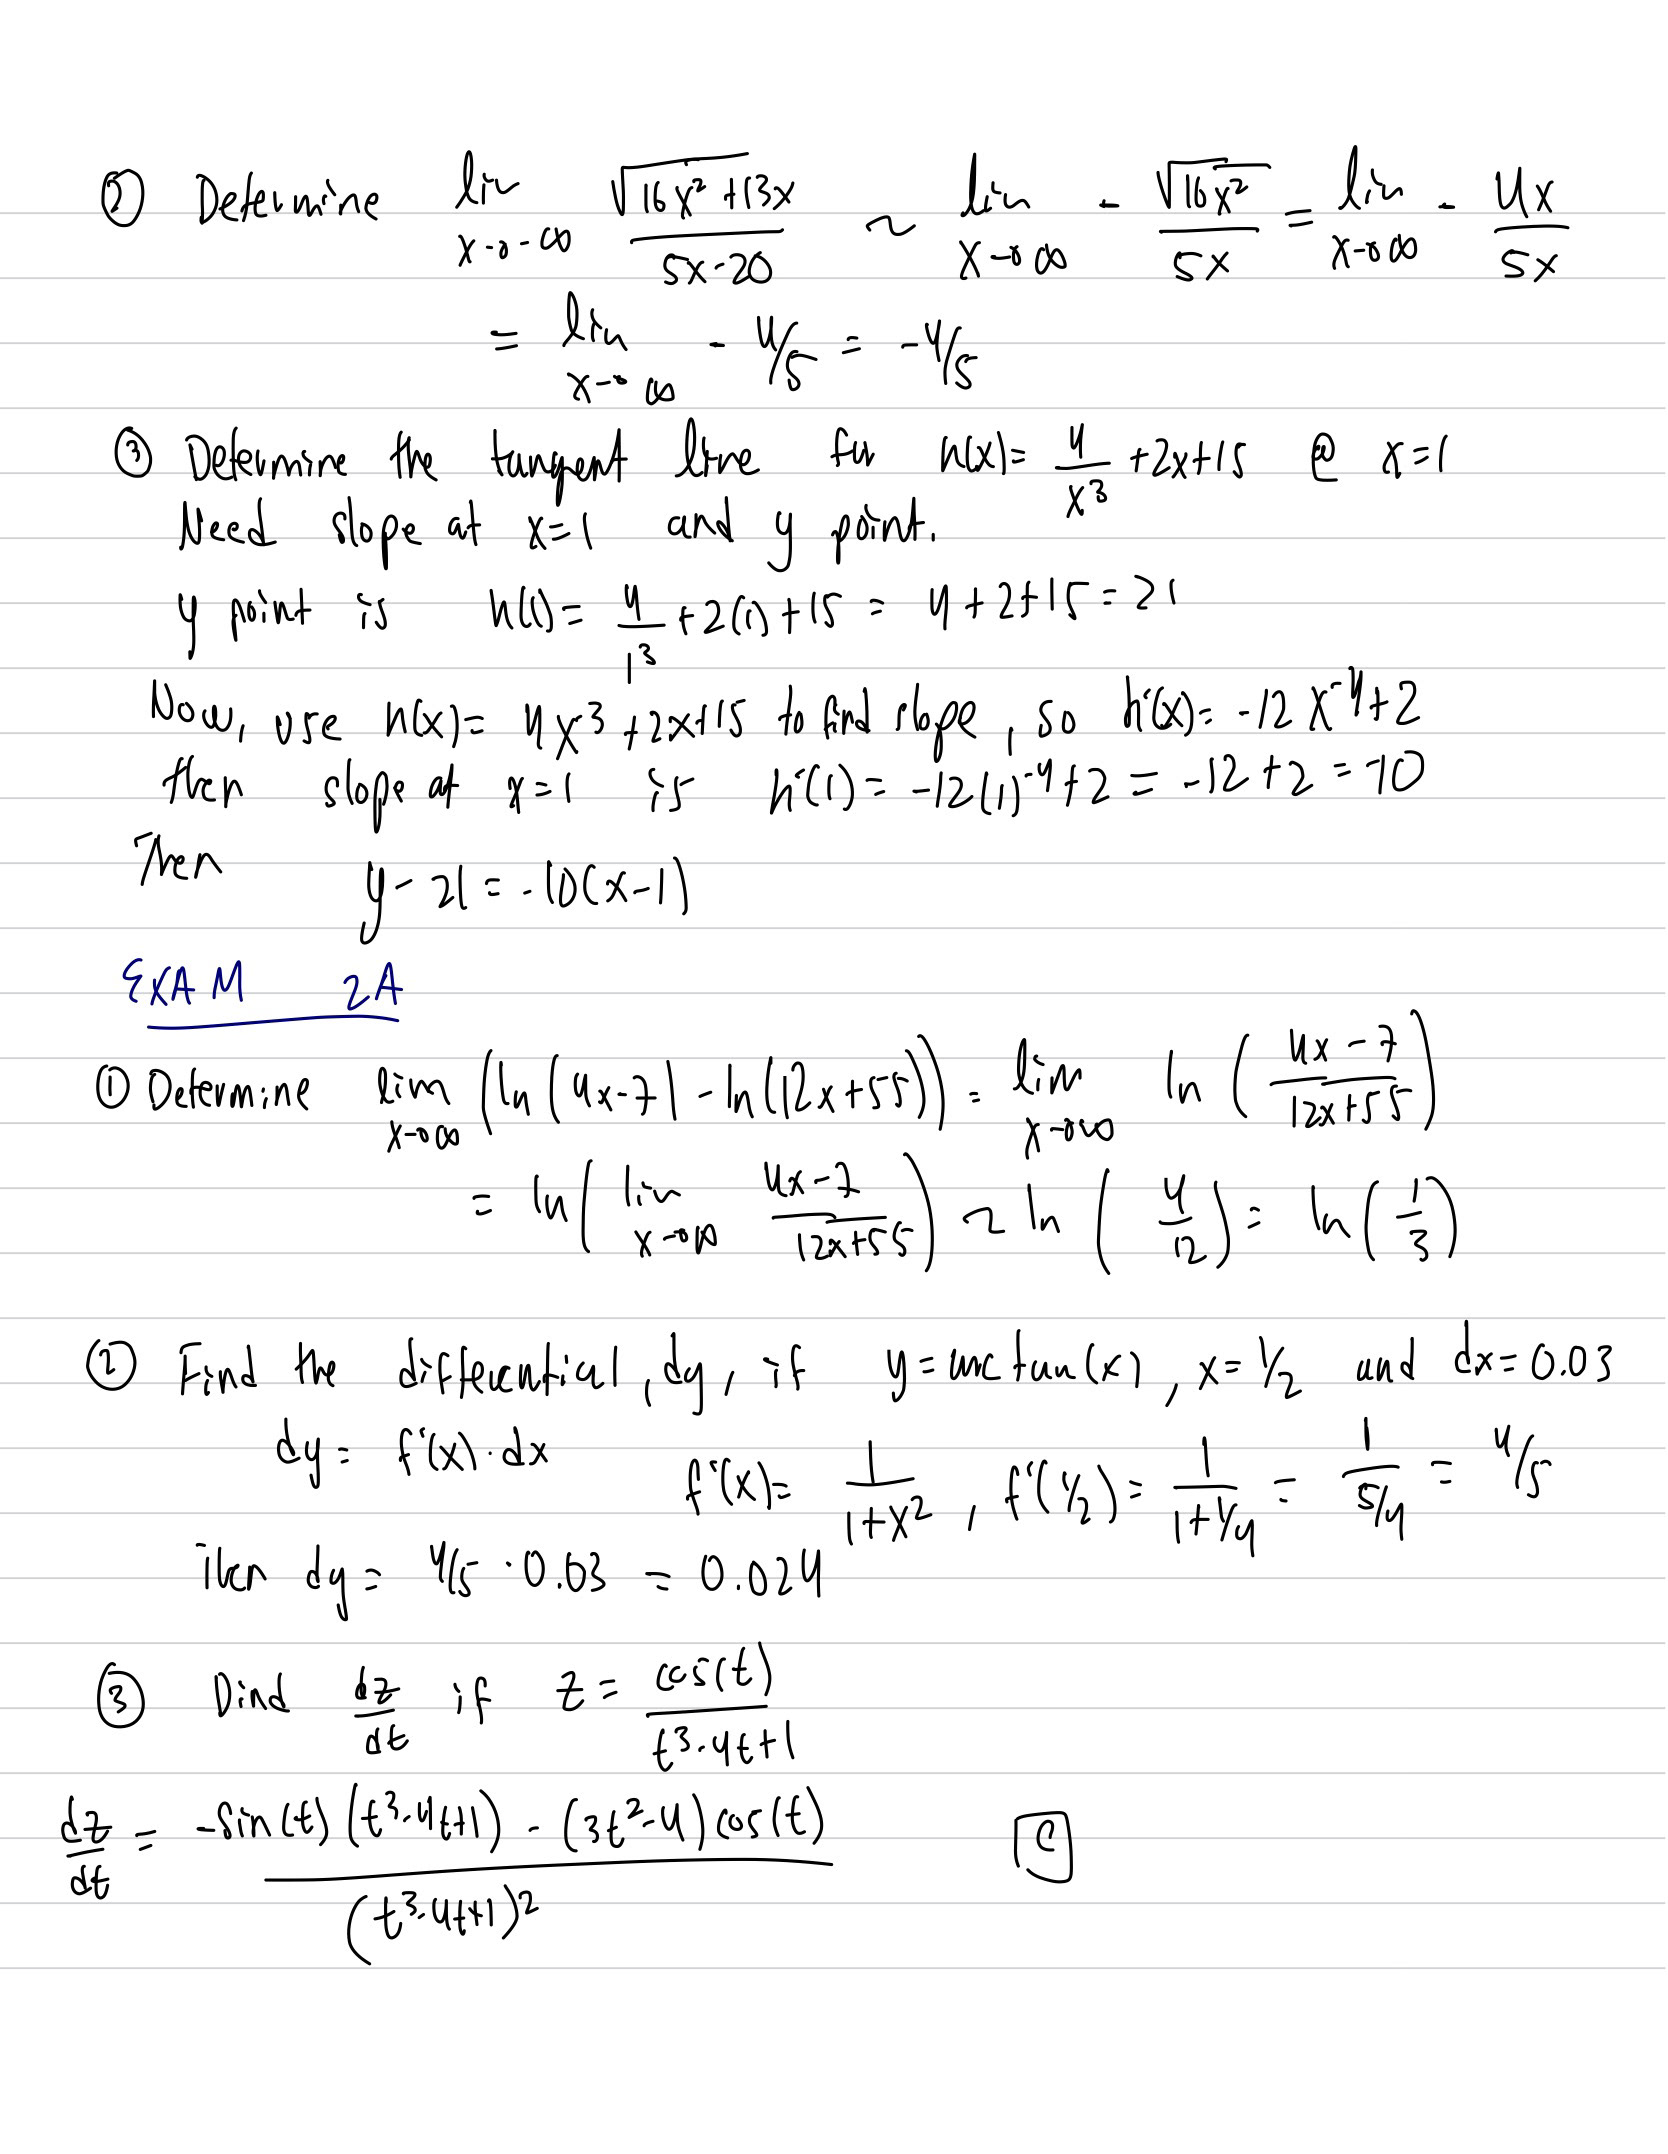 ② Determine lim x→-∞ √(16x²+13x) / (5x-20) ~ lim x→∞ - √(16x²) / 5x = lim x→∞ - 4x/5x
= lim x→∞ - 4/5 = -4/5
③ Determine the tangent line for h(x)= 4/x³ +2x+15 @ x=1
Need slope at x=1 and y point.
y point is h(1)= 4/1³ +2(1)+15 = 4+2+15=21
Now, use h(x)= 4x³+2x+15 to find slope, so h'(x)= -12x⁻⁴+2
then slope at x=1 is h'(1)= -12(1)⁻⁴+2 = -12+2 = -10
Then y-21=-10(x-1)
EXAM 2A
① Determine lim x→∞ (ln(4x-7)-ln(12x+55)) = lim x→∞ ln((4x-7)/(12x+55))
= ln(lim x→∞ (4x-7)/(12x+55)) ~ ln(4/12) = ln(1/3)
② Find the differential, dy, if y=arctan(x), x=1/2 and dx=0.03
dy= f'(x)·dx f'(x)= 1/(1+x²), f'(1/2)= 1/(1+1/4) = 1/(5/4) = 4/5
then dy= 4/5·0.03 = 0.024
③ Dind dz/dt if z= cos(t)/(t³-4t+1)
dz/dt = (-sin(t)(t³-4t+1)-(3t²-4)cos(t))/(t³-4t+1)² C